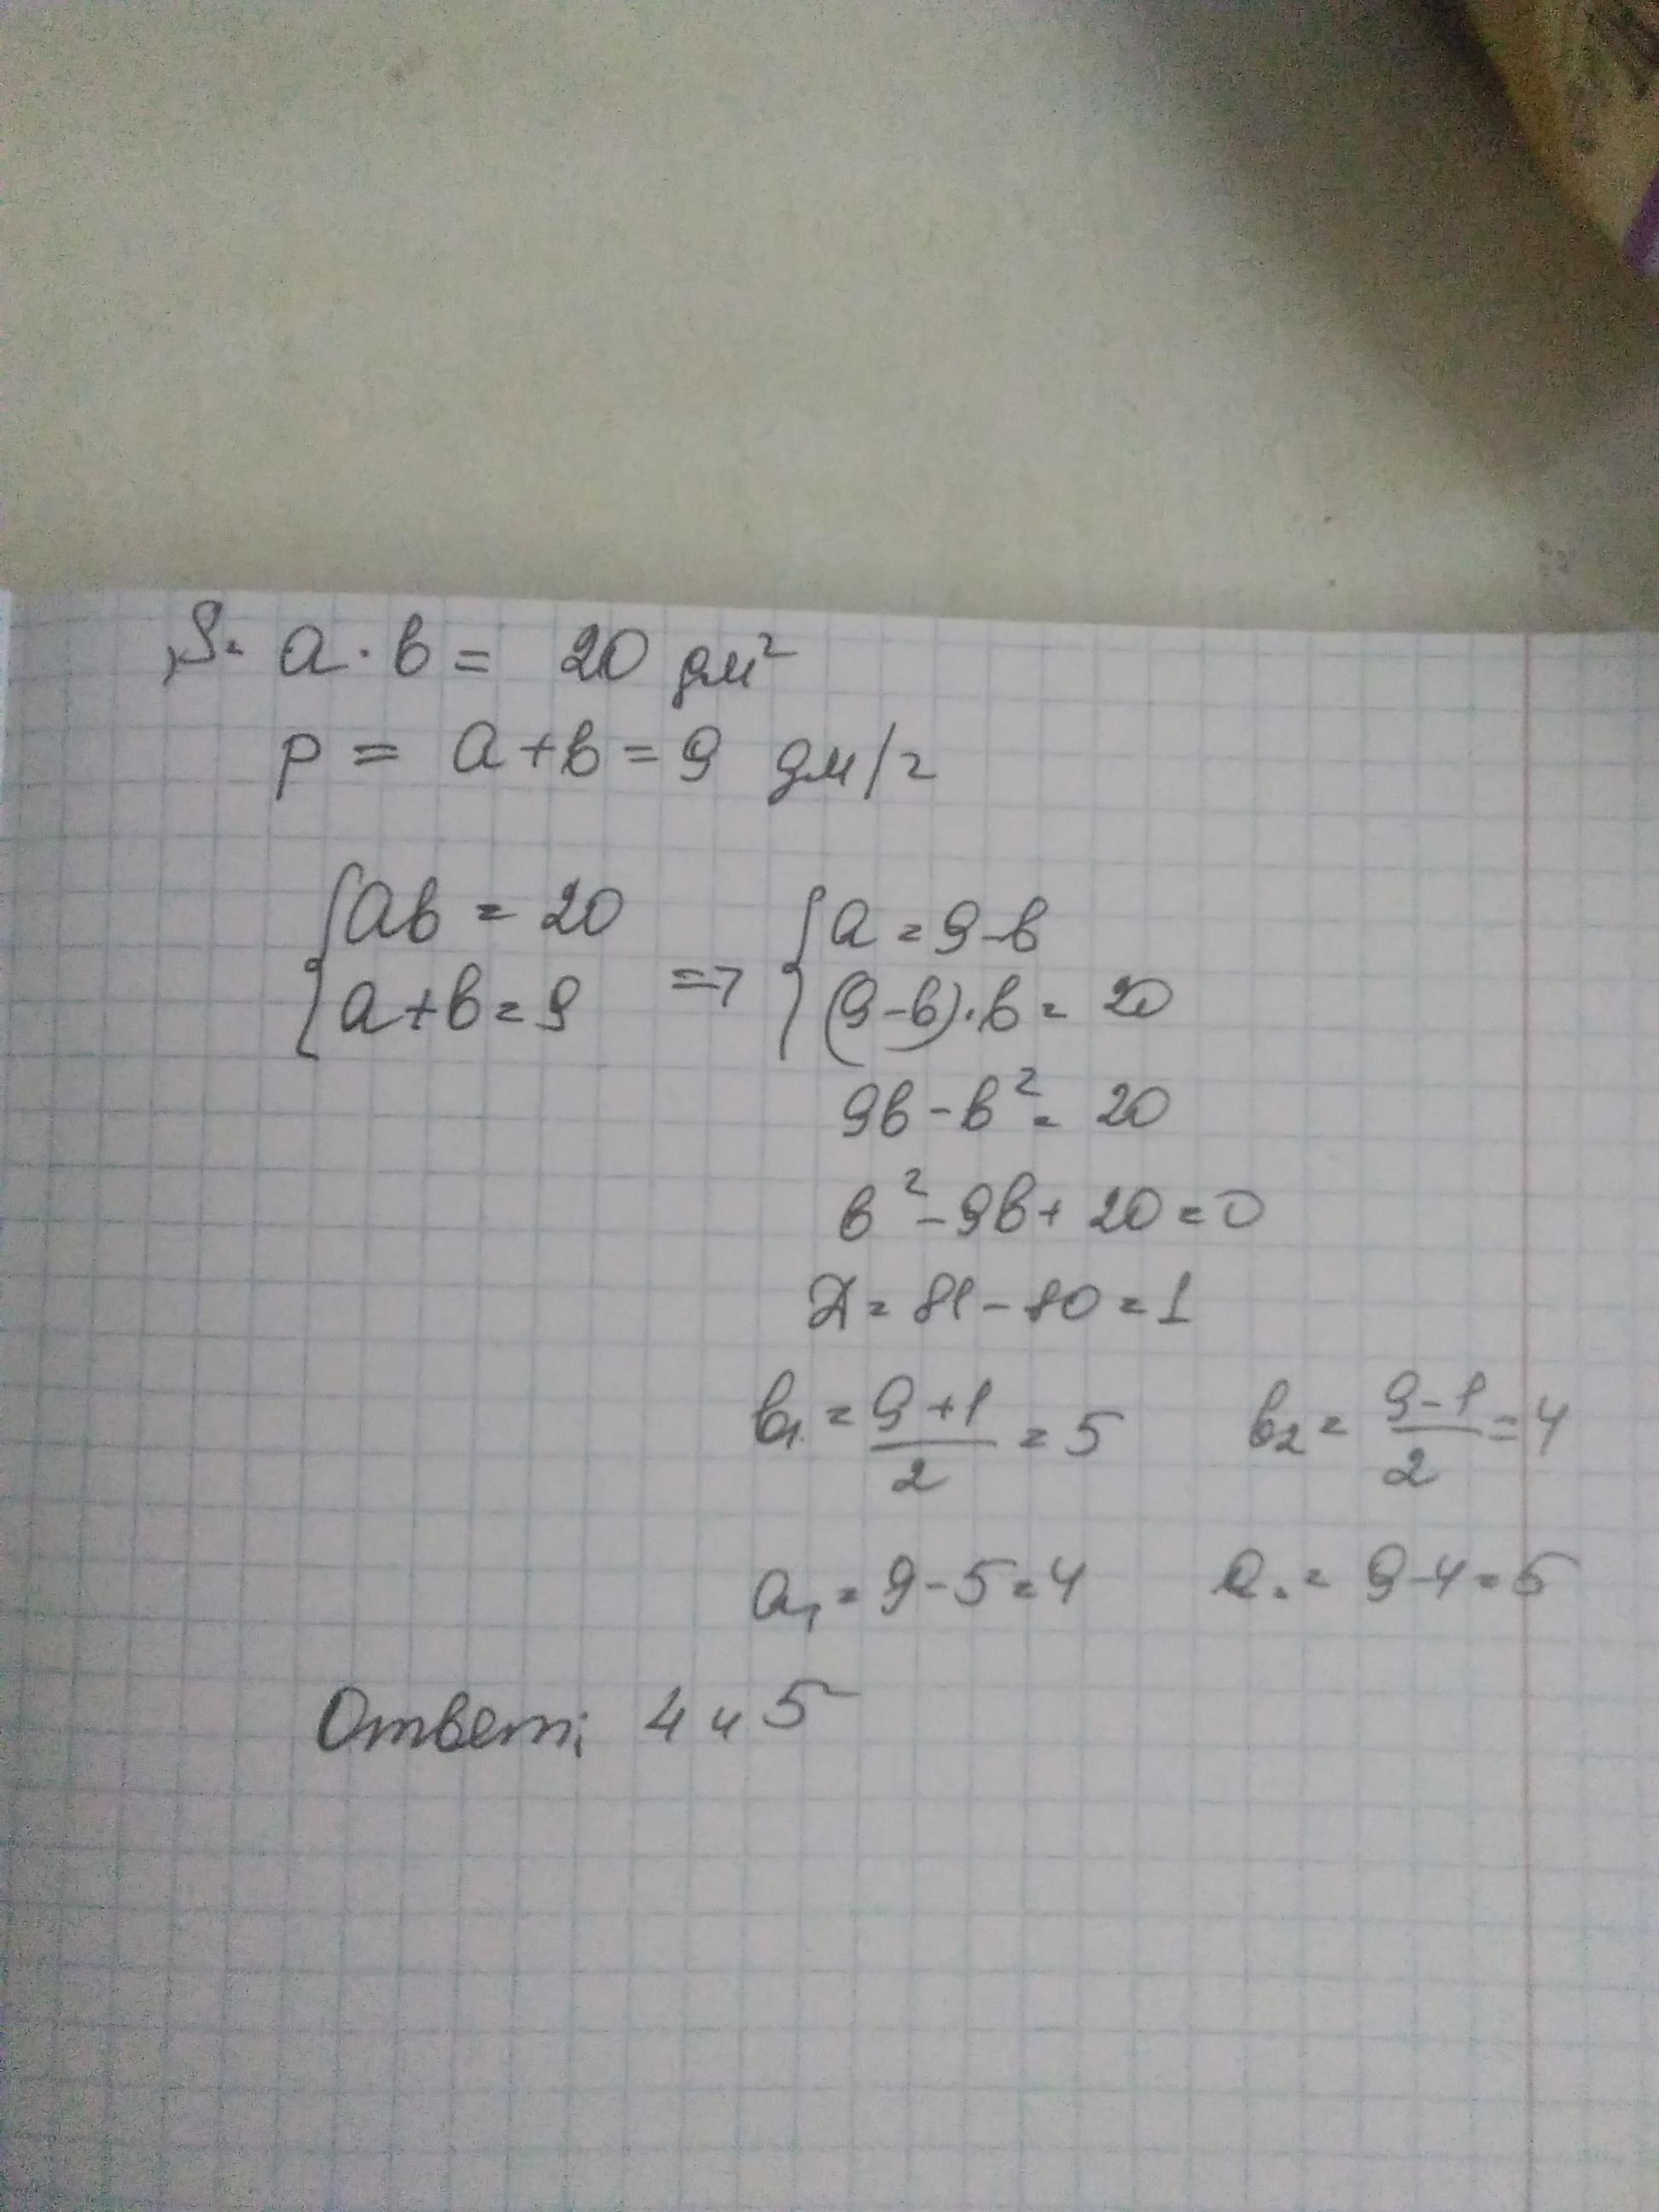 S = a · b = 20 дм²
p = a + b = 9 дм/2
{ab = 20
a + b = 9 => {a = 9 - b
(9 - b) · b = 20
9b - b² = 20
b² - 9b + 20 = 0
Д = 81 - 80 = 1
b₁ = (9 + 1)/2 = 5 b₂ = (9 - 1)/2 = 4
a₁ = 9 - 5 = 4 a₂ = 9 - 4 = 5
Ответ: 4 и 5